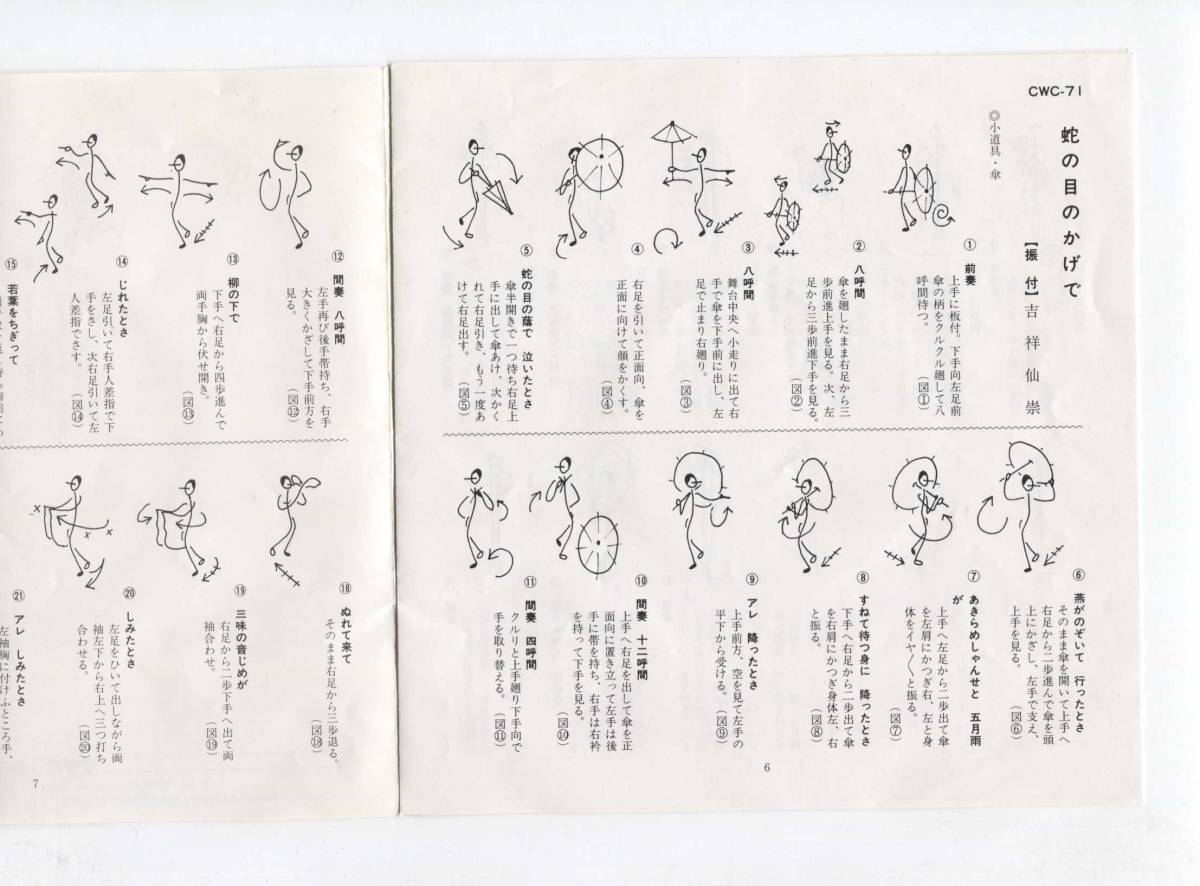 CWC-71
蛇の目のかげで
【振付】吉祥仙崇
◎小道具・傘
① 前奏
上手に板付。下手向左足前
傘の柄をクルクル廻して八
呼間待つ。
（図①）
② 八呼間
傘を廻したまま右足から三
歩前進上手を見る。次、左
足から三歩前進下手を見る。
（図②）
③ 八呼間
舞台中央へ小走りに出て右
手で傘を下手前に出し、左
足で止まり右廻り。
（図③）
④
右足を引いて正面向、傘を
正面に向けて顔をかくす。
（図④）
⑤ 蛇の目の蔭で 泣いたとさ
傘半開きで一つ待ち右足上
手に出して傘あけ、次かく
れて右足引き、もう一度あ
けて右足出す。
（図⑤）
⑥ 燕がのぞいて 行ったとさ
そのまま傘を開いて上手へ
右足から二歩進んで傘を頭
上にかざし、左手で支え、
上手を見る。
（図⑥）
⑦ あきらめしゃんせと 五月雨
が
上手へ左足から二歩出て傘
を左肩にかつぎ右、左と身
体をイヤ〳〵と振る。
（図⑦）
⑧ すねて待つ身に 降ったとさ
下手へ右足から二歩出て傘
を右肩にかつぎ身体左、右
と振る。
（図⑧）
⑨ アレ 降ったとさ
上手前方、空を見て左手の
平下から受ける。
（図⑨）
⑩ 間奏 十二呼間
上手へ右足を出して傘を正
面向に置き立って左手は後
手に帯を持ち、右手は右衿
を持って下手を見る。
（図⑩）
⑪ 間奏 四呼間
クルリと上手廻り下手向で
手を取り替える。
（図⑪）
6
⑫ 間奏 八呼間
左手再び後手帯持ち、右手
大きくかざして下手前方を
見る。
（図⑫）
⑬ 柳の下で
下手へ右足から四歩進んで
両手胸から伏せ開き。
（図⑬）
⑭ じれたとさ
左足引いて右手人差指で下
手をさし、次右足引いて左
人差指でさす。
（図⑭）
⑮ 若葉をちぎって
⑱ ぬれて来て
そのまま右足から三歩退る。
（図⑱）
⑲ 三味の音じめが
右足から二歩下手へ出て両
袖合わせ。
（図⑲）
⑳ しみたとさ
左足をひいて出しながら両
袖左下から右上へ三つ打ち
合わせる。
（図⑳）
㉑ アレ しみたとさ
左袖胸に付けふところ手、
7